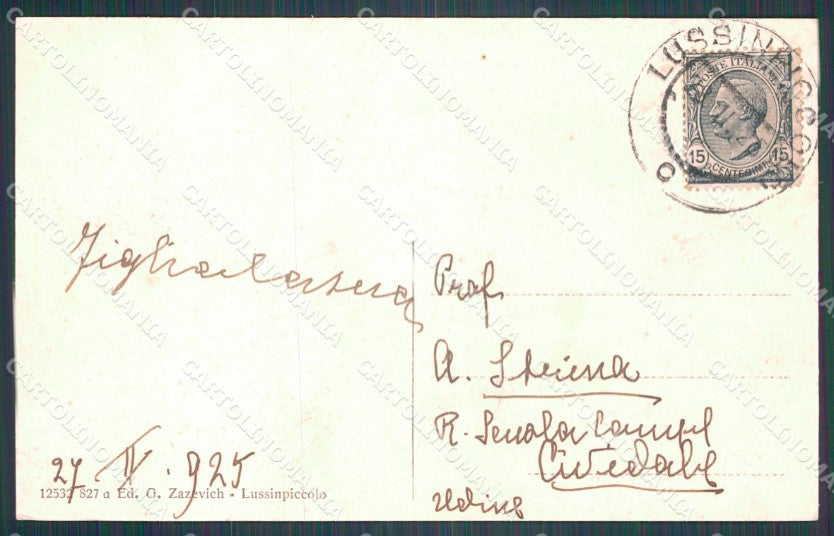 LUSSINPICCOLO
POSTE ITALIANE
15 15
CENTESIMI
Prof
A. Steiena
R. Scuola Compl
Cividale
Udine
27. IV. 925
12532 827 a Ed. G. Zazevich - Lussinpiccolo
CARTOLINOMANIA